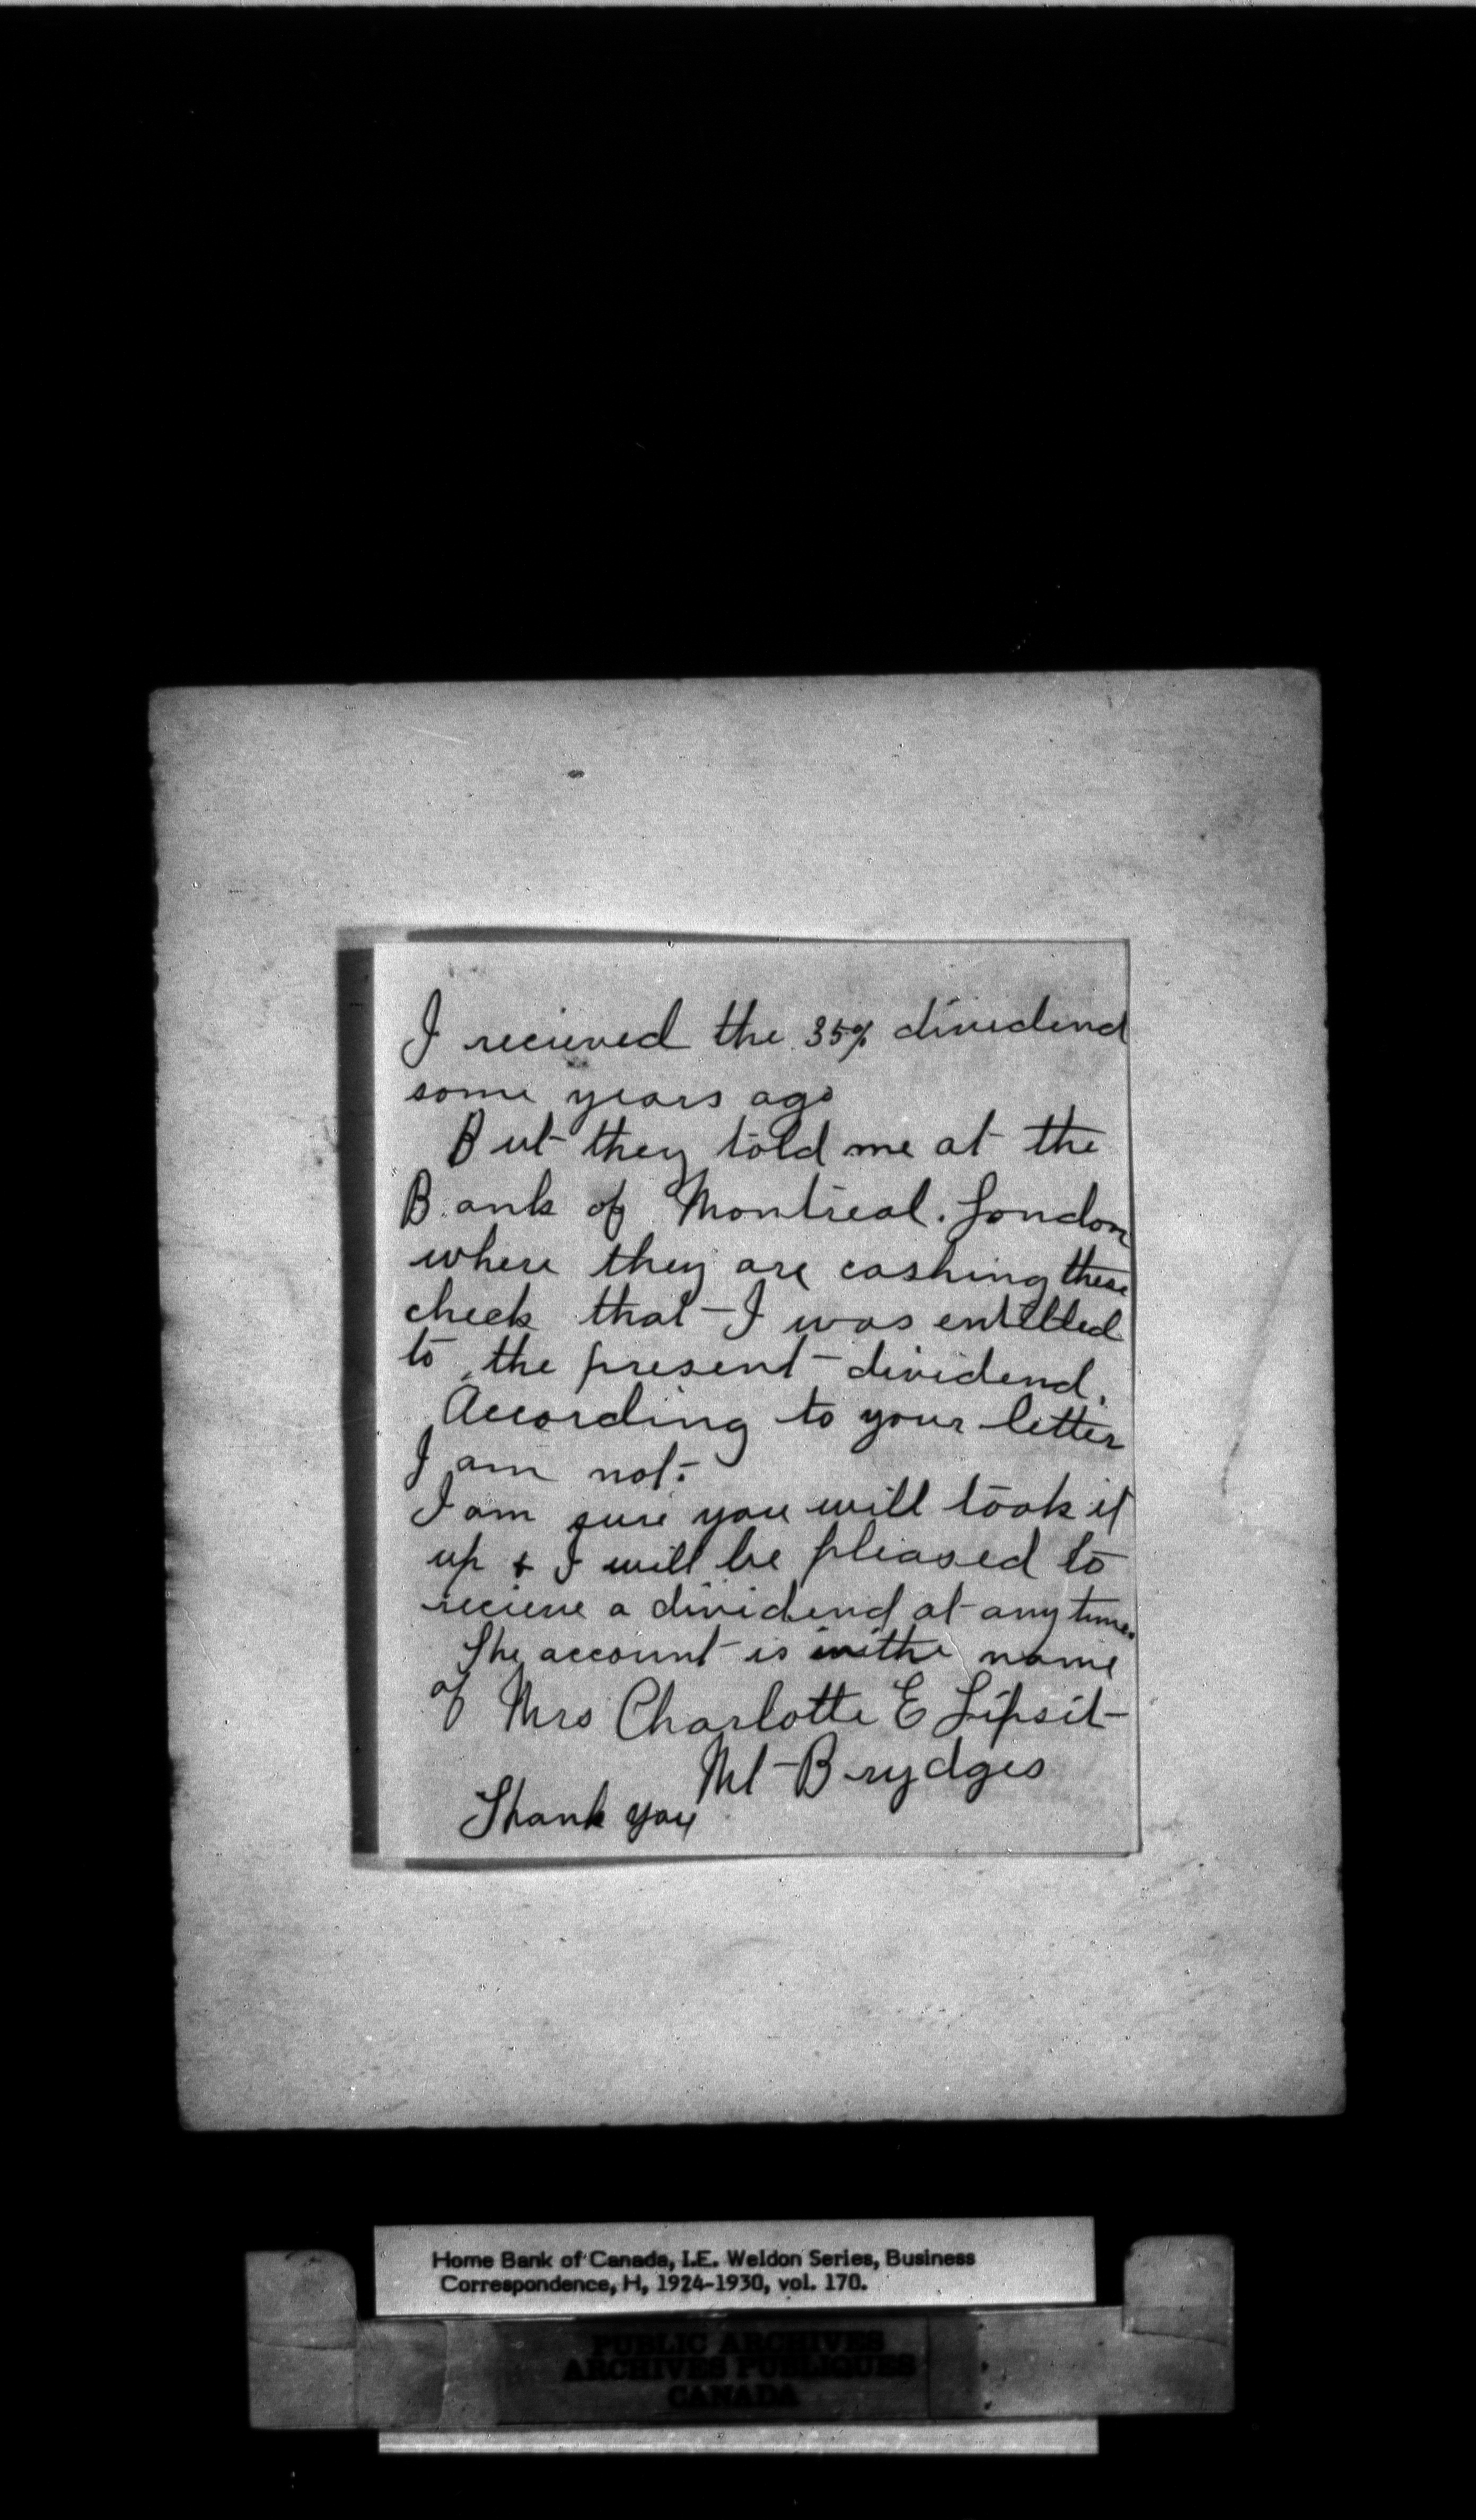 I recieved the 35% dividend
some years ago
But they told me at the
Bank of Montreal. London
where they are cashing these
check that I was entitled
to the present dividend.
According to your letter
I am not.
I am sure you will look it
up & I will be pleased to
recieve a dividend at any time.
The account is in the name
of Mrs Charlotte E Lipsit
Mt Brydges
Thank you
Home Bank of Canada, I.E. Weldon Series, Business
Correspondence, H, 1924-1930, vol. 170.
PUBLIC ARCHIVES
ARCHIVES PUBLIQUES
CANADA